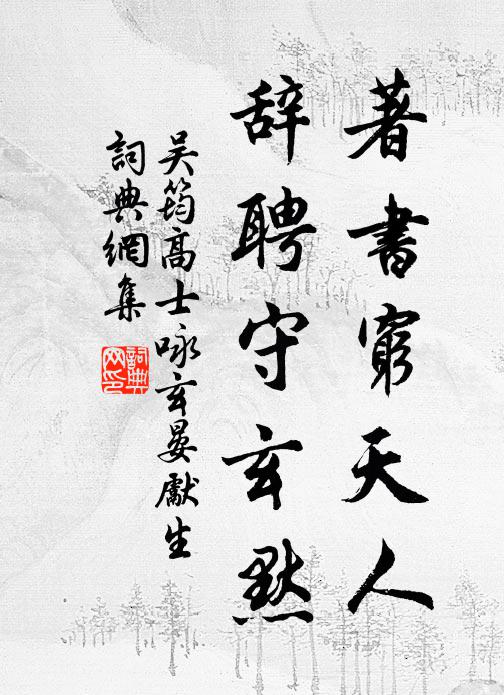 著書窮天人
辞聘守玄默
吴筠高士咏玄晏獻生
詞典網集
詞典网印